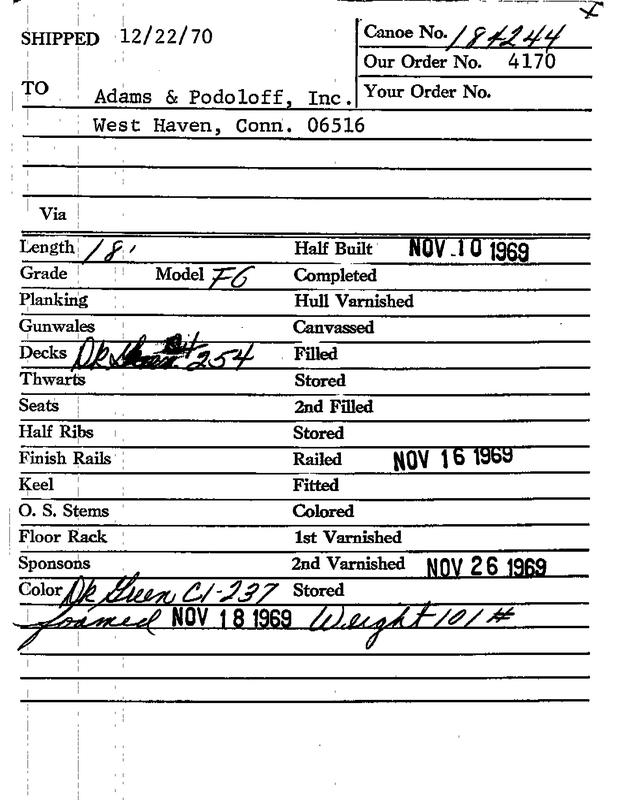 SHIPPED 12/22/70
Canoe No. 184244
Our Order No. 4170
TO Adams & Podoloff, Inc.
Your Order No.
West Haven, Conn. 06516
Via
Length 18' Half Built NOV 10 1969
Grade Model FG Completed
Planking Hull Varnished
Gunwales Canvassed
Decks Dk Green 254 Filled
Thwarts Stored
Seats 2nd Filled
Half Ribs Stored
Finish Rails Railed NOV 16 1969
Keel Fitted
O. S. Stems Colored
Floor Rack 1st Varnished
Sponsons 2nd Varnished NOV 26 1969
Color Dk Green C1-237 Stored
foamed NOV 18 1969 Weight 101#